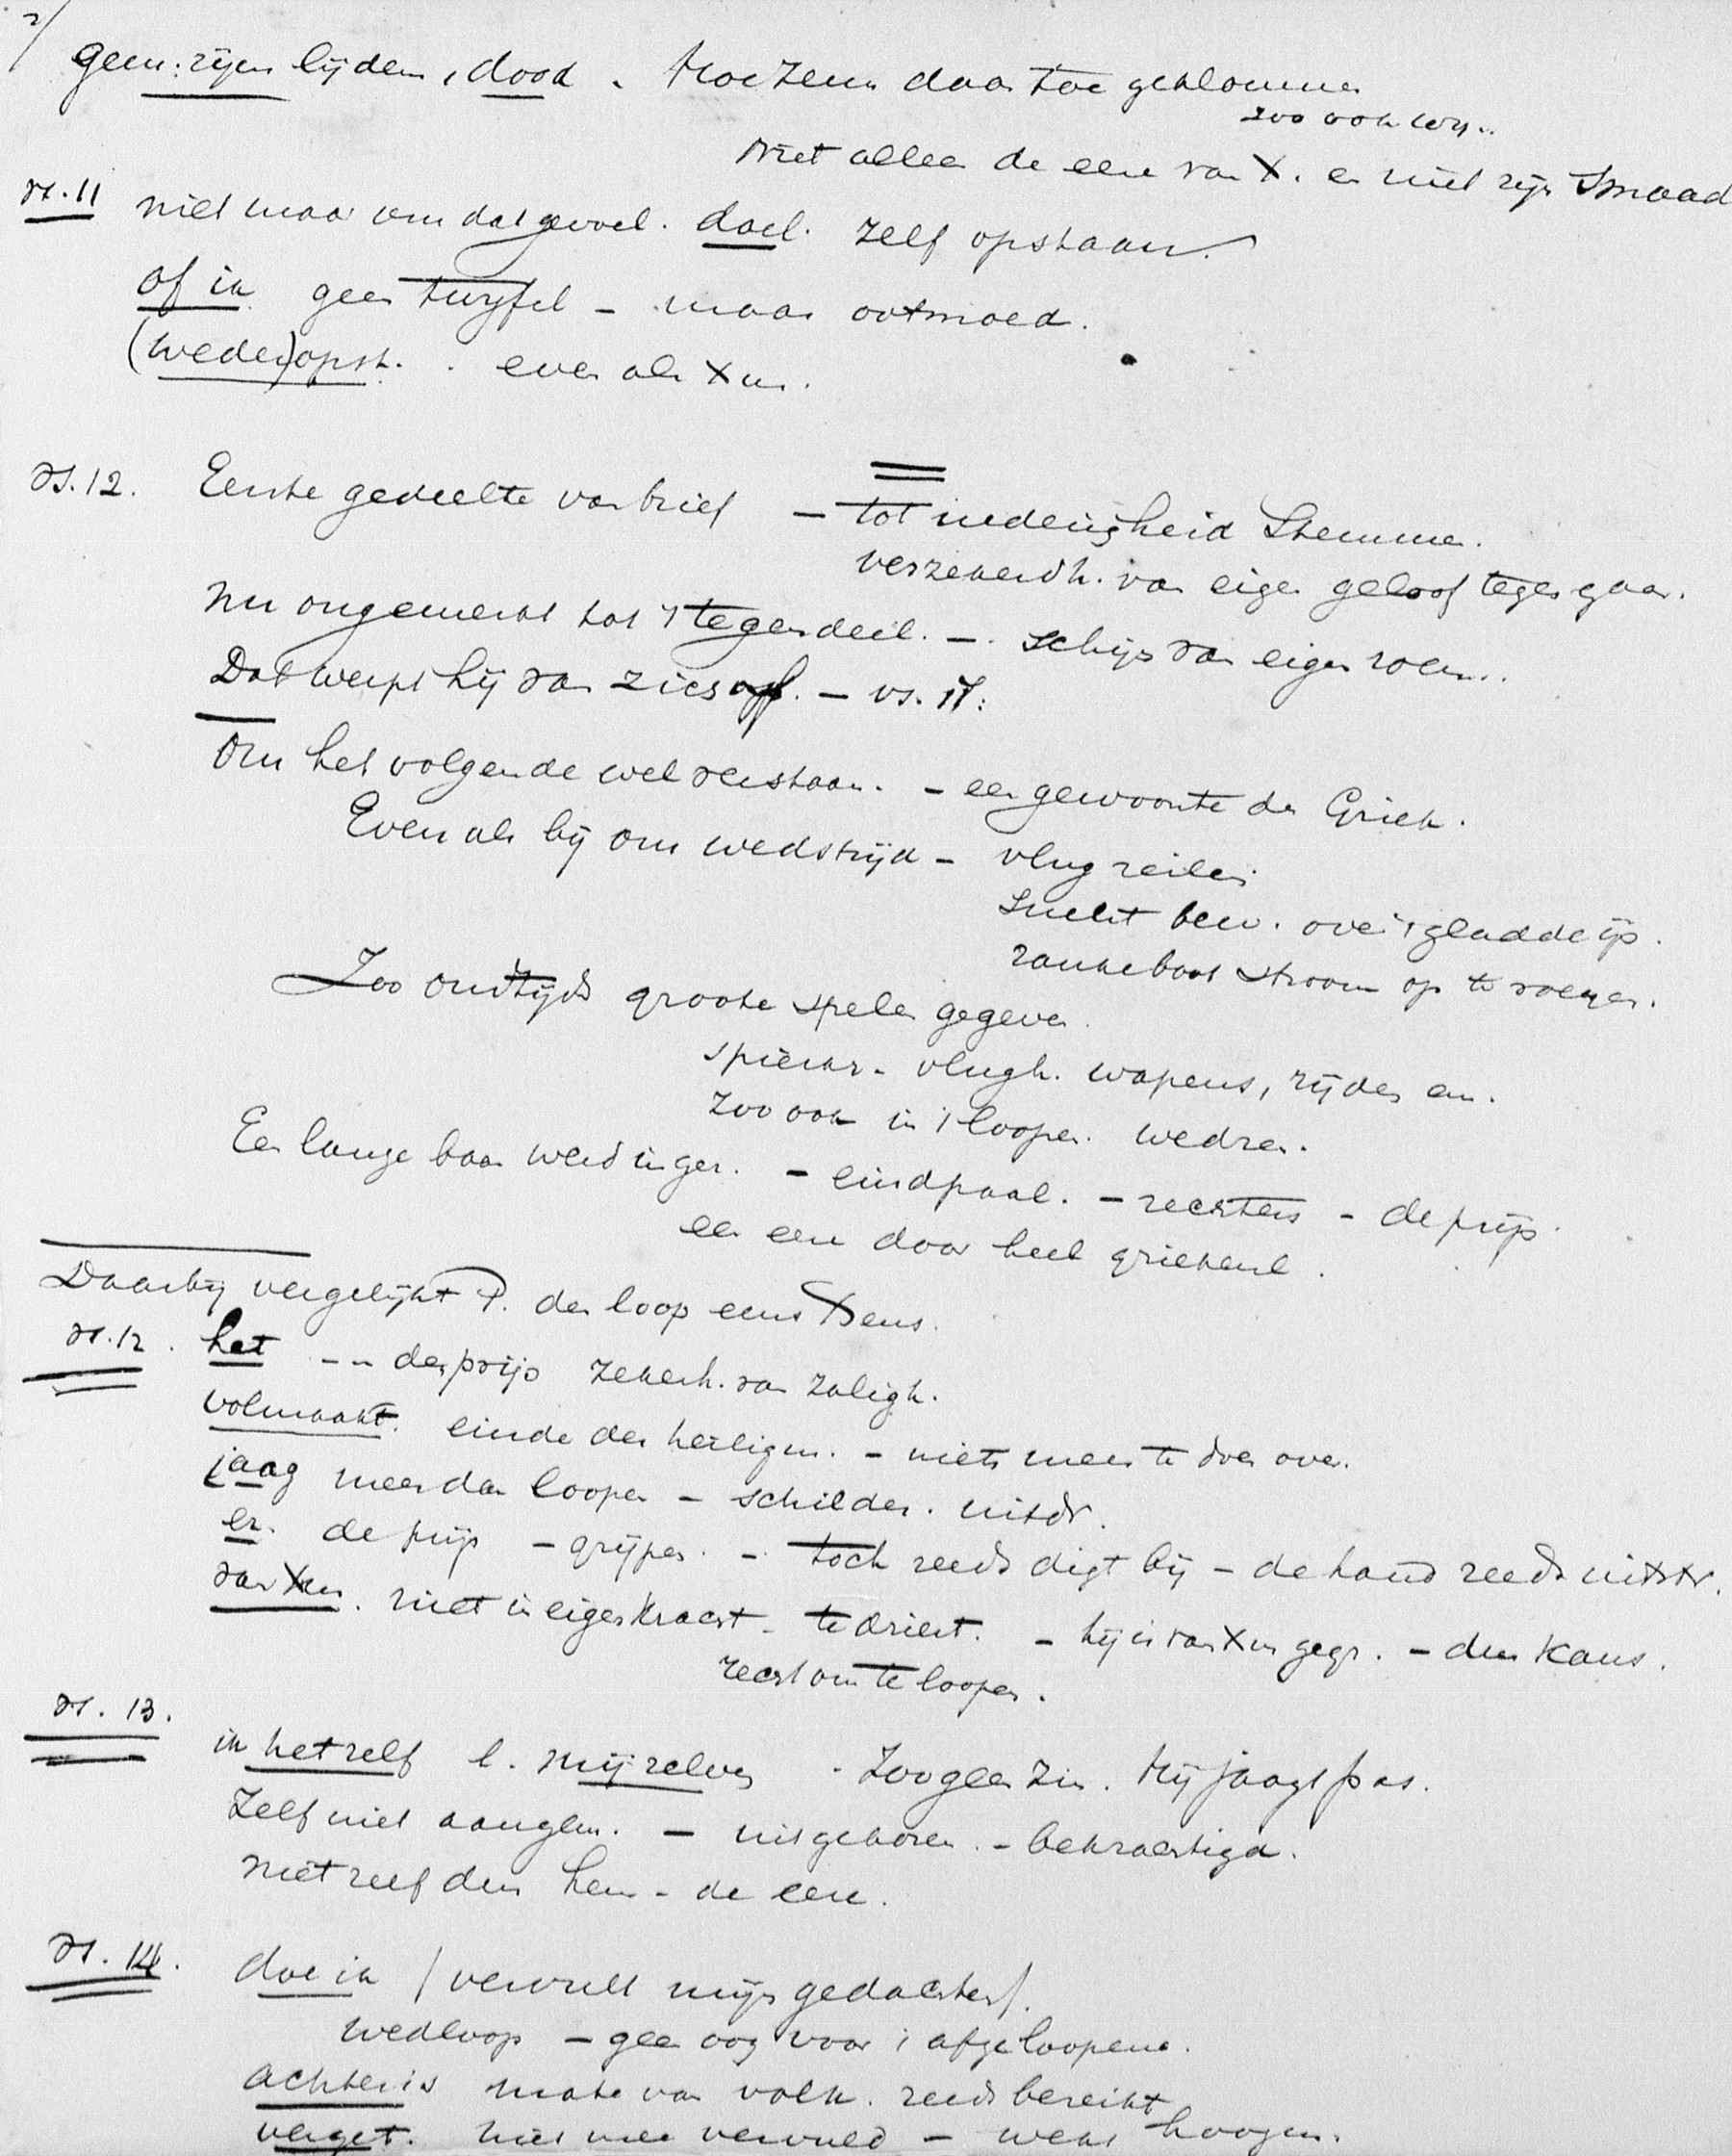 2/
gem: zijn lijden, dood. Hoe Jezus daar toe gekomen
zoo ook wij..
Niet alleen de eere van X. en niet zijn smaad
vs. 11 niet maar om dat gevoel. doel. zelf opstaan.
of ik geen twyfel - maar ootmoed.
(weder)opst. . even als Xus.
vs. 12. Eerste gedeelte van brief - tot nederigheid stemmen.
verzekerdh. van eigen geloof tegengaan.
Nu ongemerkt tot 't tegendeel. - schijn van eigen roem..
Dat werpt hij van zich af. - vs. 17:
Om het volgende wel verstaan. - een gewoonte der Griek.
Even als bij ons wedstrijd - vlug zeilen
snelst bew. over 't gladde ijs.
ranke boot stroom op te roeyen.
Zoo oudtijds groote spelen gegeven.
spierkr. - vlugh. wapens, rijden en.
zoo ook in 't loopen. wedren.
Een lange baan werd inger. - eindpaal. - rechters - de prijs.
een eere door heel Griekenl.
Daarbij vergelijkt P. den loop eens Xens.
vs. 12. het -- den prijs zekerh. van zaligh.
volmaakt. einde der heiligm. - niets meer te doen over.
jaag meer dan loopen - schilder. uitdr.
er. de prijs - grijpen. - toch reeds digt bij - de hand reeds uitstr.
van Xus. niet in eigen kracht - te driest. - hij is van Xus gegr. - dus kans.
recht om te loopen.
vs. 13. ik het zelf l. mij zelven - Zoo geen zin. Hij jaagt pas.
Zelf niet aangen. - uitgekoren. - bekrachtigd.
niet zelf dus hem - de eere.
vs. 14. doe ik / vervult mijn gedachten/.
wedloop - geen oog voor 't afgeloopene.
achter is mate van volk. reeds bereikt
verget. niet mee vervuld - hoogm.